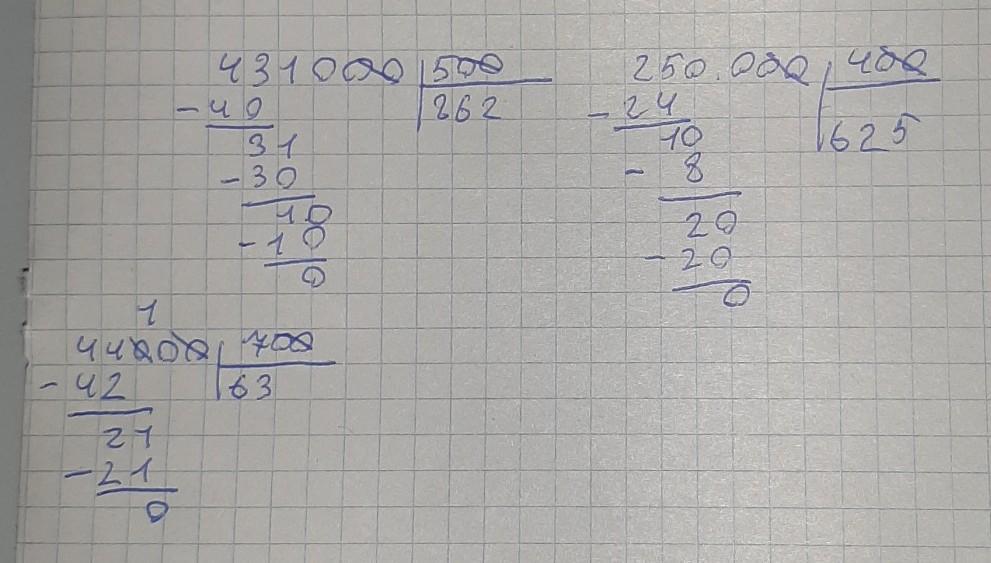 431000 500
-40 862
31
-30
10
-10
0
250.000 400
-24 625
10
- 8
20
-20
0
1
44000 700
-42 63
21
-21
0